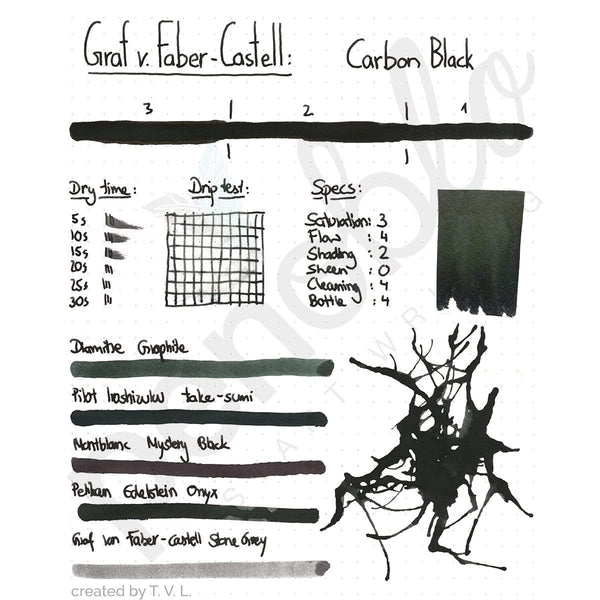 Graf v. Faber-Castell: Carbon Black
3 | 2 | 1
Dry time: Drip test: Specs:
5s
10s
15s
20s
25s
30s
Saturation: 3
Flow : 4
Shading : 2
Sheen : 0
Cleaning : 4
Bottle : 4
Diamine Graphite
Pilot Iroshizuku take-sumi
Montblanc Mystery Black
Pelikan Edelstein Onyx
Graf von Faber-Castell Stone Grey
created by T. V. L.